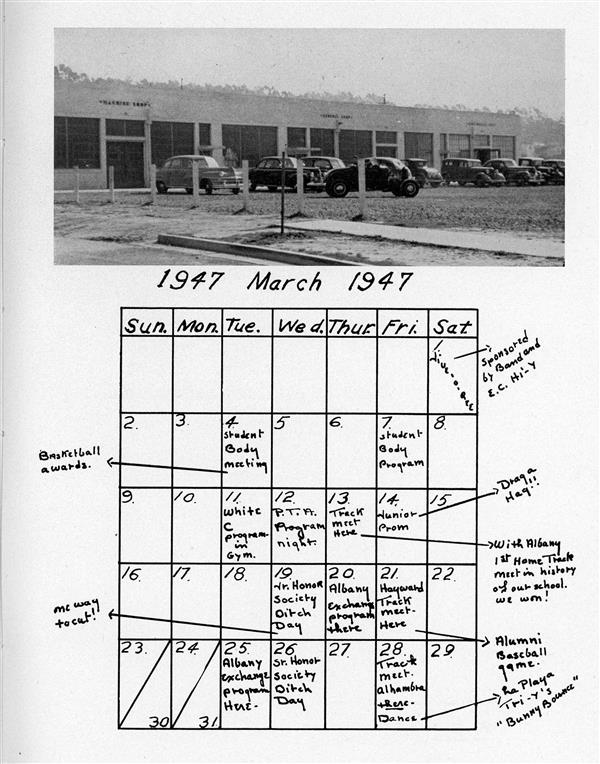 "MACHINE SHOP"
"GENERAL SHOP"
1947 March 1947
Sun. Mon. Tue. Wed. Thur Fri. Sat.
1
Jive-o-Ree
Sponsored
by Band and
E.C. Hi-Y
2. 3. 4. 5. 6. 7. 8.
Student
Body
meeting
Basketball
awards.
Student
Body
Program
9. 10. 11. 12. 13. 14. 15
White
C
program-
in
Gym.
P.T.A.
Program
night.
Track
meet
Here
Junior
Prom
Drag a
Hag!!
With Albany
1st Home Track
meet in history
of our school.
we won!
16. 17. 18. 19. 20. 21. 22.
Jr. Honor
Society
Ditch
Day
me way
to cut!!
Albany
Exchange
program
there
Hayward
Track
meet-
Here
Alumni
Baseball
game.
23. 24. 25. 26. 27. 28. 29.
30. 31.
Albany
Exchange
program
Here-
Sr. Honor
Society
Ditch
Day
Track
meet-
alhambra
there-
Dance
La Playa
Tri-Y's
"Bunny Bounce"